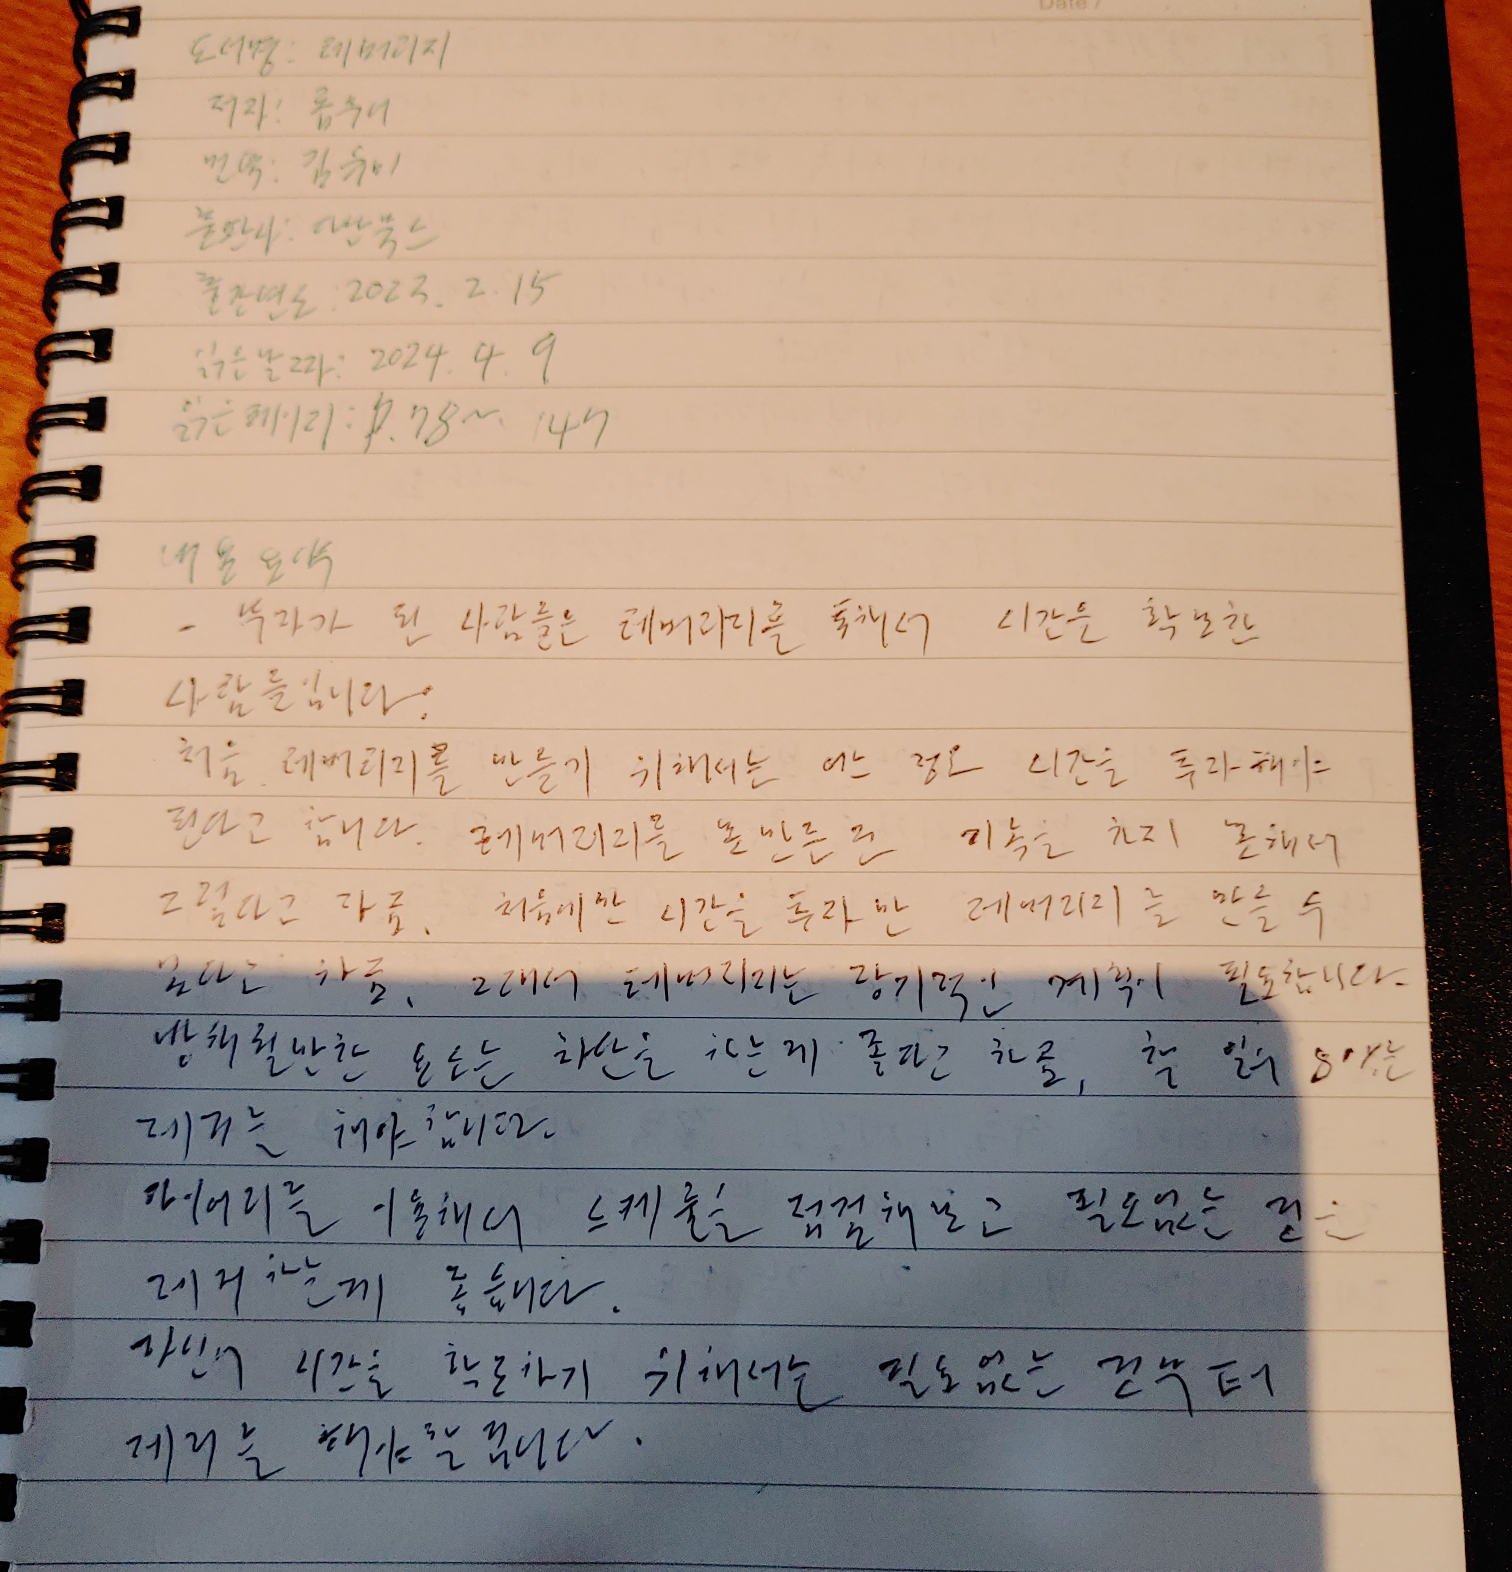 Date /
도서명: 레버리지
저자: 롭무어
번역: 김유미
출판사: 다산북스
출간연도: 2023. 2. 15
읽은날짜: 2024. 4. 9
읽은페이지: p. 78~ 147
내용요약
- 부자가 된 사람들은 레버리지를 통해서 시간을 확보한
사람들입니다.
처음 레버리지를 만들기 위해서는 어느 정도 시간을 투자해야
된다고 합니다. 레버리지를 못만든건 기록을 하지 못해서
그렇다고 하죠. 처음에만 시간을 투자만 레버리지를 만들 수
있다고 하죠. 그래서 레버리지는 장기적인 계획이 필요합니다.
방해될만한 요소는 차단을 하는게 좋다고 하죠,
제거를 해야합니다.
다이어리를 이용해서 스케줄을 점검해보고 필요없는 것은
제거하는게 좋습니다.
자신의 시간을 확보하기 위해서는 필요없는 것부터
제거를 해야할겁니다.